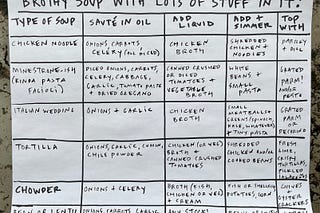 BROTHY SOUP WITH LOTS OF STUFF IN IT!
TYPE OF SOUP
SAUTÉ IN OIL
ADD LIQUID
ADD + SIMMER
TOP WITH
CHICKEN NOODLE
ONIONS, CARROTS,
CELERY
CHICKEN
BROTH
SHREDDED
CHICKEN +
NOODLES
PARSLEY +
DILL
MINESTRONE-ISH
(KINDA PASTA
FAGIOLI)
DICED ONIONS, CARROTS,
CELERY, CABBAGE,
GARLIC, TOMATO PASTE
+ DRIED OREGANO
CANNED CRUSHED
OR DICED
TOMATOES +
VEGETABLE
BROTH
WHITE
BEANS +
SMALL
PASTA
GRATED
PARM
PASTA
ITALIAN WEDDING
ONIONS + GARLIC
CHICKEN
BROTH
SMALL
MEATBALLS +
GREENS (SPINACH,
KALE, WHATEVER)
+ TINY PASTA
GRATED
PARM
OR
PECORINO
TORTILLA
ONIONS, GARLIC, CUMIN,
CHILI POWDER
CHICKEN (OR VEG)
BROTH +
CANNED CRUSHED
TOMATOES
SHREDDED
CHICKEN AND/OR
COOKED BEANS
FRESH
LIME,
CRISPY
TORTILLAS,
PICKLED
CHOWDER
ONIONS + CELERY
BROTH (FISH,
CHICKEN OR VEG)
+ CREAM
FISH OR SHELLFISH,
POTATOES, CORN
CHIVES +
OYSTER
CRACKERS
ONIONS, CARROTS, GARLIC